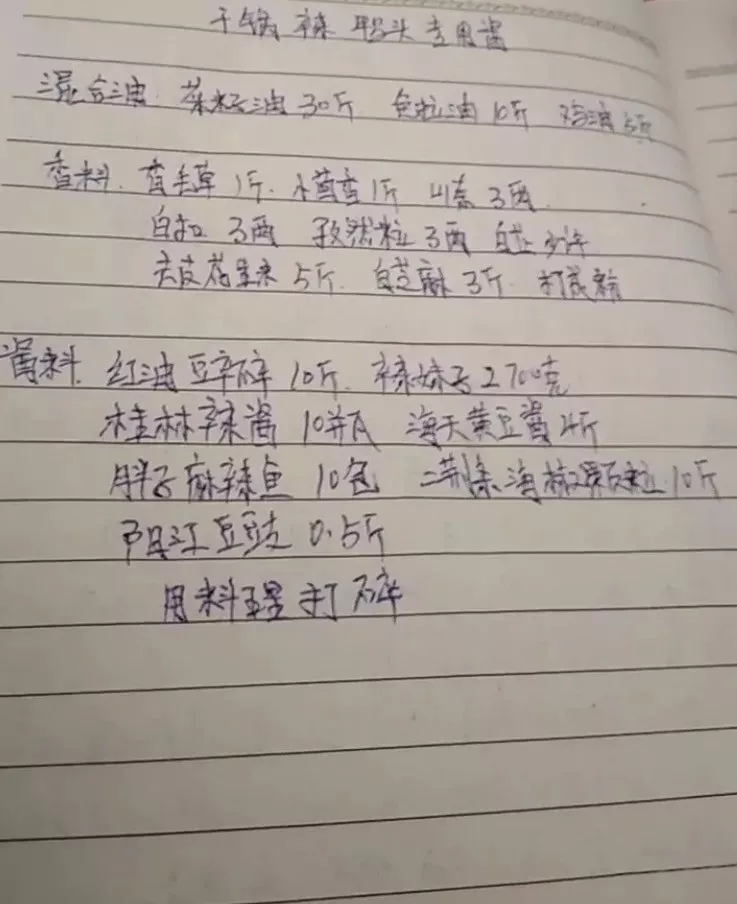 干锅辣鸭头专用酱
混合油 菜籽油30斤 色粒油10斤 鸡油5斤
香料.香毛草1斤.小茴香1斤 山奈3两
白扣3两 孜然粒3两 白芷少许
去皮花生米5斤.白芝麻3斤.打成粉
酱料.红油豆辛碎10斤.辣妹子2700克
桂林辣酱10瓶 海天黄豆酱4斤
胖子麻辣鱼10包 二荆条海椒颗粒10斤
阳江豆豉0.5斤
用料理打碎